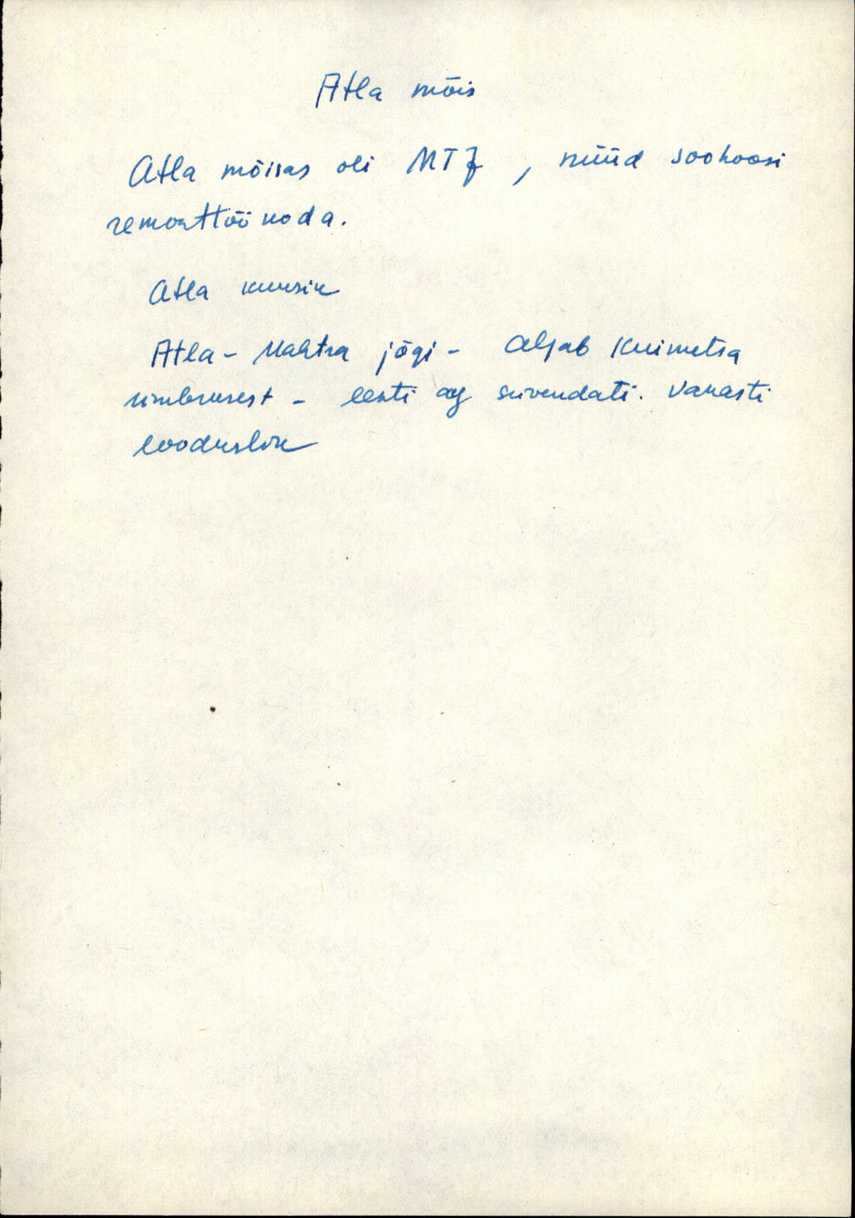 Atla mõis
Atla mõisas oli MTJ, nüüd soohoosi
remonttöökoda.
Atla kuusik
Atla - Mahtra jõgi - Algab Kuimetsa
ümbrusest - eesti aeg süvendati. Vanasti
looduslik